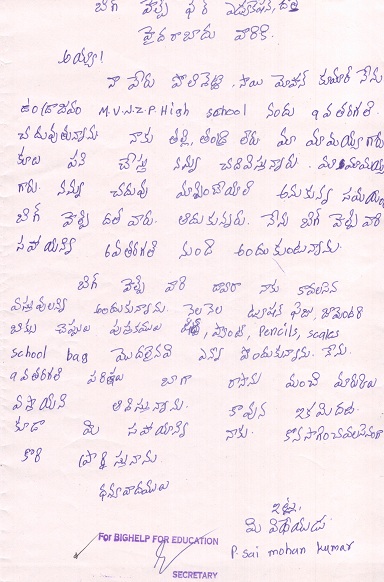 బిగ్ హెల్ప్ ఫర్ ఎడ్యుకేషన్,
హైదరాబాదు వారికి
అయ్యా!
నా పేరు పోలిశెట్టి, సాయి మోహన్ కుమార్ నేను
M.V.N.Z.P. High school నందు 9వ తరగతి
చదువుతున్నాను నాకు తల్లి, తండ్రి లేరు మా మామయ్య గారు
కూలి పని చేస్తూ నన్ను చదివిస్తున్నారు. మా మామయ్య
గారు నన్ను చదువు అనుకున్న సమయం
బిగ్ హెల్ప్ వారు ఆదుకున్నారు. నేను బిగ్ హెల్ప్ వారి
సహాయాన్ని 6వ తరగతి నుండి అందుకుంటున్నాను.
బిగ్ హెల్ప్ వారి ద్వారా నాకు కావలసిన
వస్తువులన్ని అందుకున్నాను. నెల నెల ట్యూషన్ ఫీజు,
బుక్కు చెప్పులు పుస్తకములు ప్యాంట్, Pencils, scales
school bag మొదలైనవి ఎన్నో పొందుకున్నాను. నేను
9వ తరగతి పరీక్షలు బాగా రాసాను మంచి మార్కులు
వస్తాయని ఆశిస్తున్నాను. కావున ఇక మీదట
కూడా మీ సహాయాన్ని నాకు
కోరి ప్రార్థిస్తున్నాను.
ధన్యవాదములు
ఇట్లు,
మీ విధేయుడు
P. sai mohan kumar
For BIGHELP FOR EDUCATION
SECRETARY